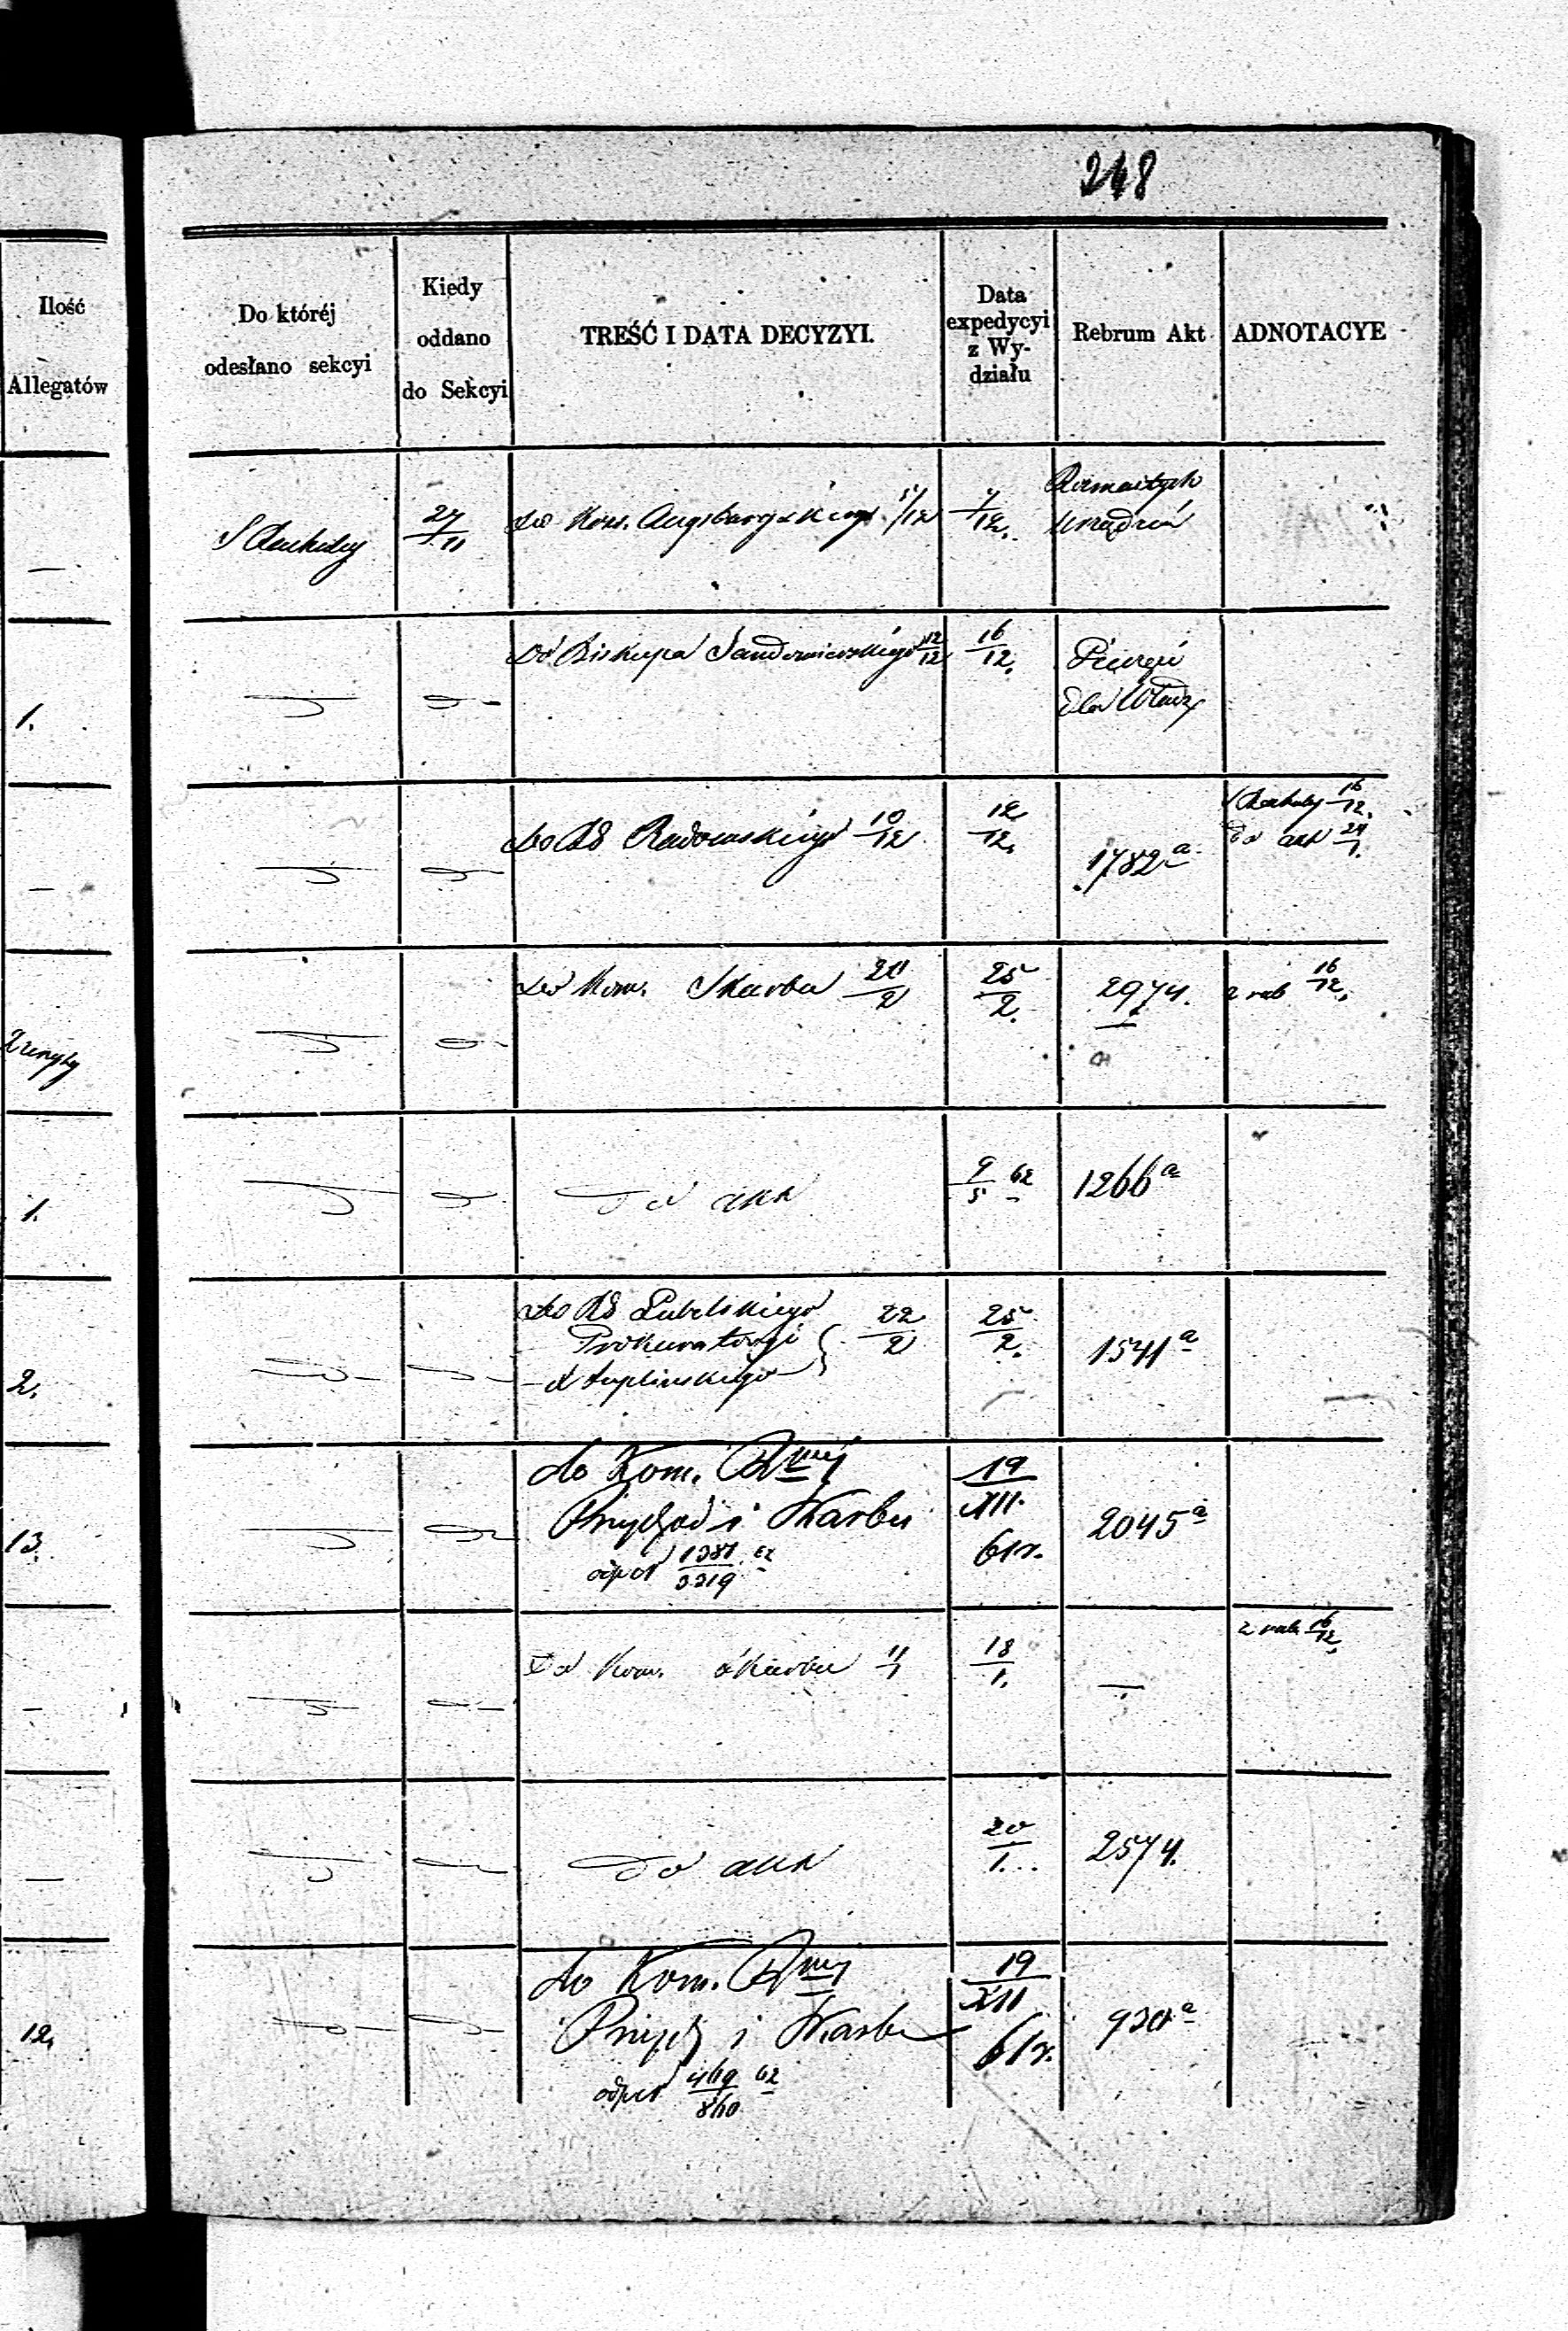 248
Ilość
Allegatów
Do któréj
odesłano sekcyi
Kiedy
oddano
do Sekcyi
TREŚĆ I DATA DECYZYI.
Data
expedycyi
z Wy-
działu
Rebrum Akt
ADNOTACYE
—
27/11
do Kons. Augsburgskiego 5/12
7/12.
1.
Do Biskupa Sandomierskiego 12/12
16/12.
Pieczęci
dla Władz
—
do RG Radomskiego 10/12
12/12.
1782 a
16/12.
Do akt 24/1.
do Kom. Skarbu 20/2
25/2.
2974.
16/12.
1.
Do akt
9/5 62
1266 a
2.
do RG Lubelskiego
Prokuratoryi
22/2
25/2.
1541 a
13.
do Kom. Rz
Przych i Skarbu
odpow 1381/3319 62
19/XII.
61 r.
2045 a
—
Do Kom. Skarbu 11/1
18/1.
—
16/12.
—
Do akt
20/1.
2574.
12.
do Kom. Rz
Przych i Skarbu
odpow 469/860 62
19/XII
61 r.
930 a